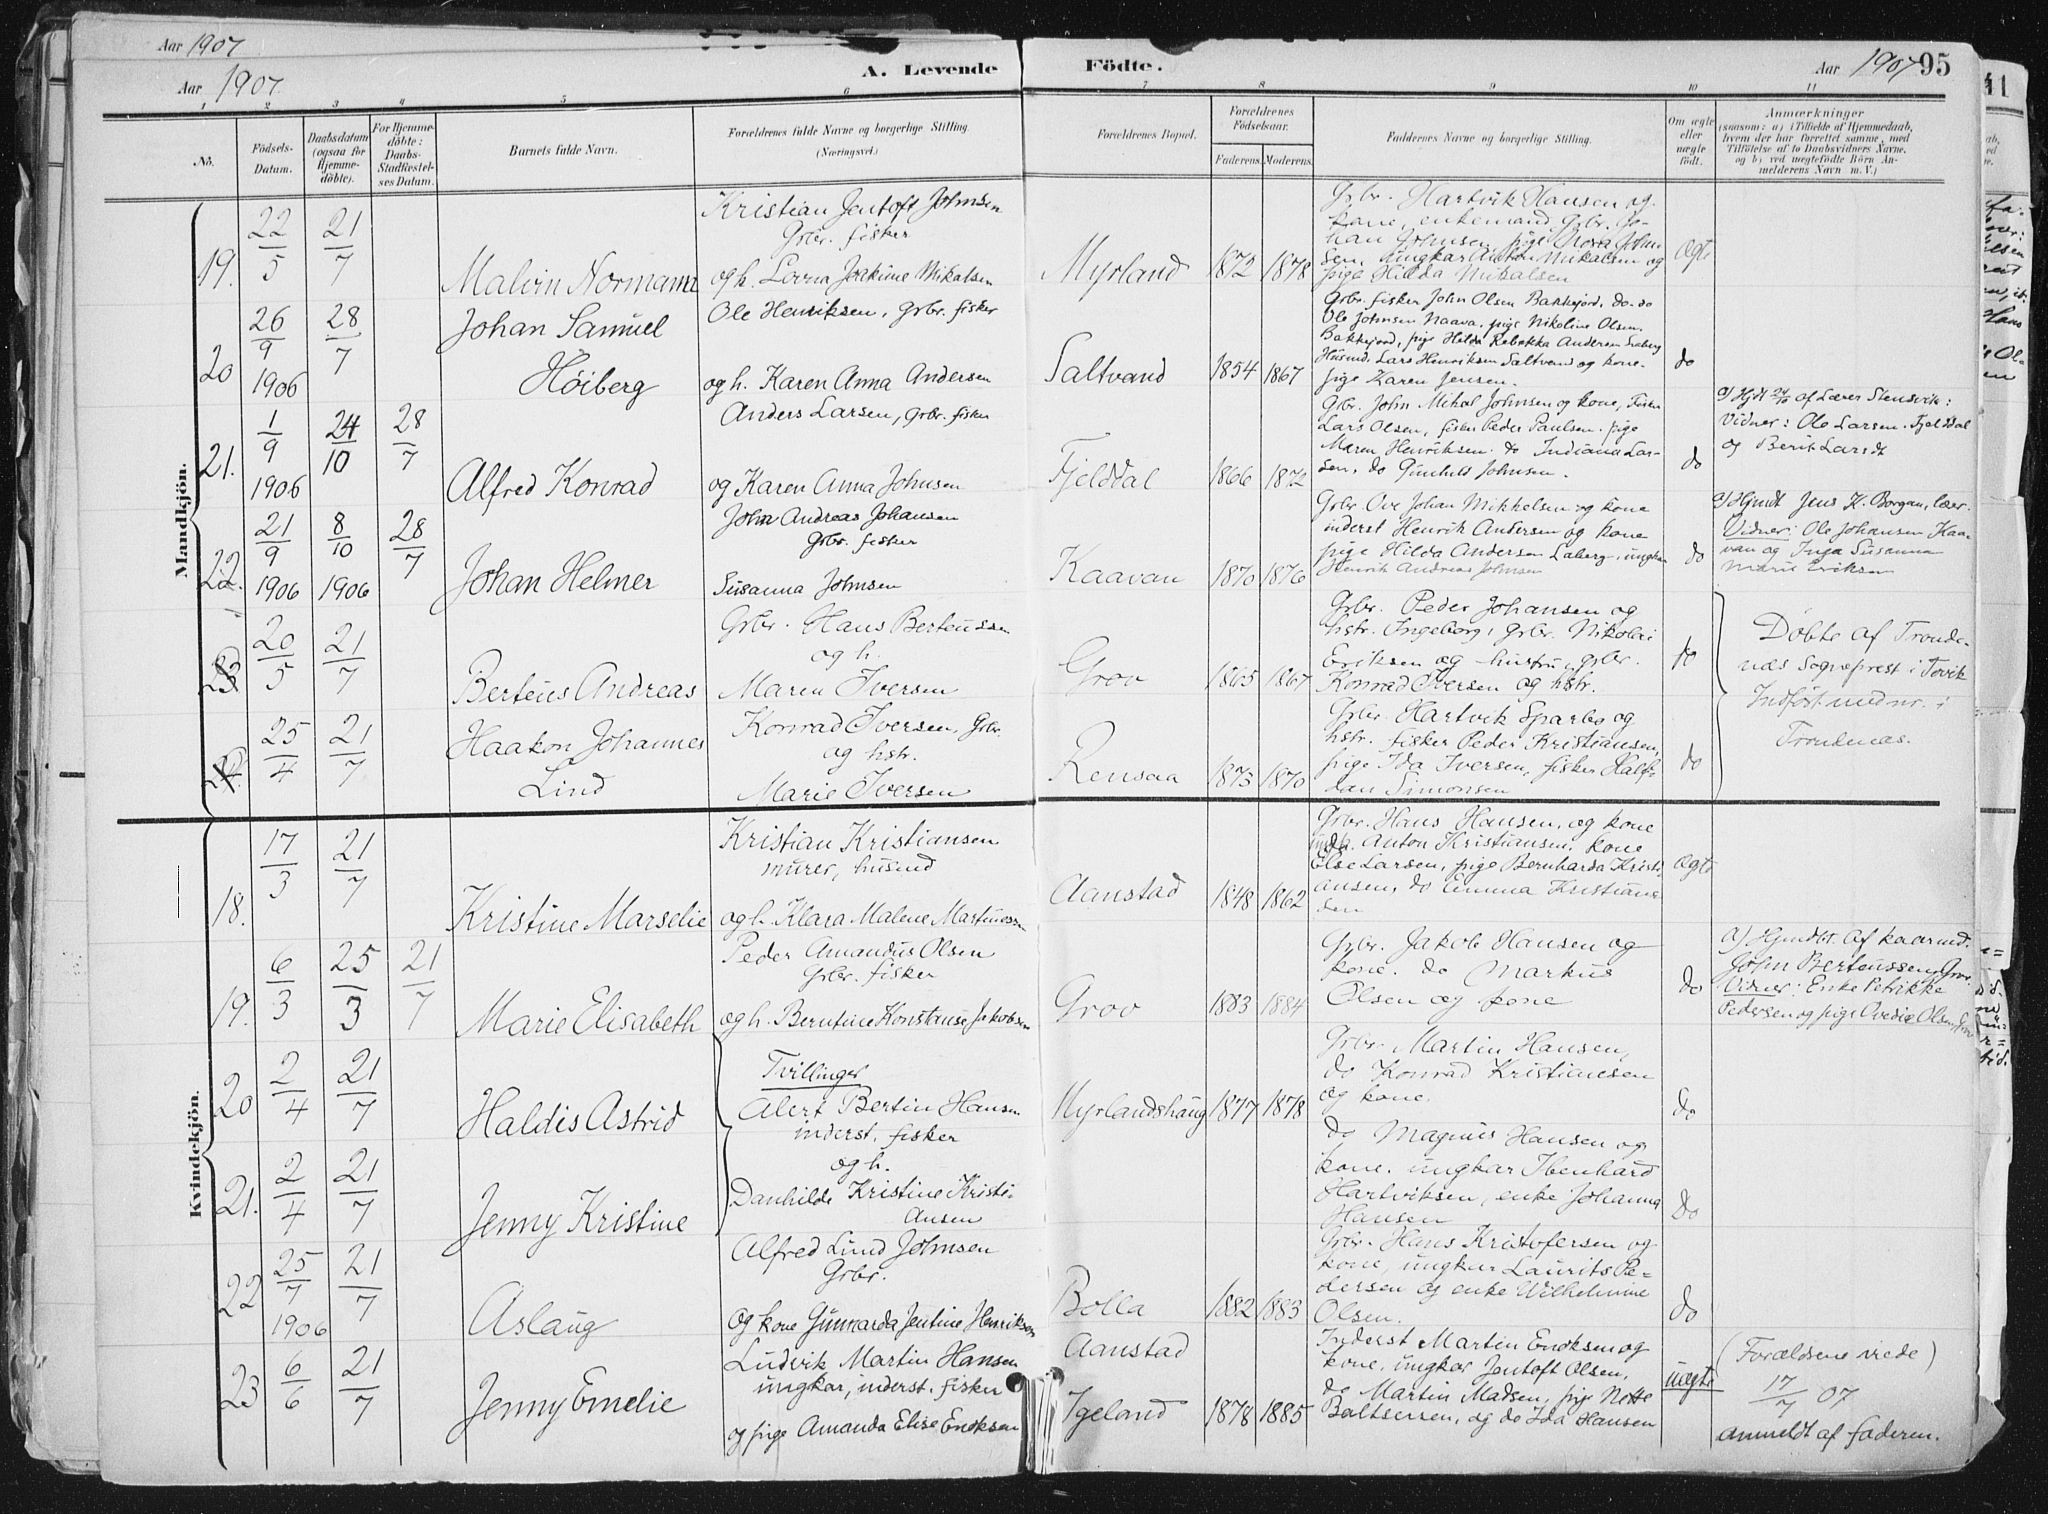 Aar 1907
Aar 1907.
A. Levende
Födte.
Aar 1907
95
1 2 3 4 5 6 7 8 9 10 11
No.
Födsels-Datum.
Daabsdatum (ogsaa for Hjemme-döbte).
For Hjemme-döbte: Daabs-Stadfæstel-ses Datum.
Barnets fulde Navn.
Forældrenes fulde Navne og borgerlige Stilling. (Næringsvei.)
Forældrenes Bopæl.
Forældrenes Födselsaar.
Faderens. Moderens.
Faddernes Navne og borgerlige Stilling.
Om ægte eller uægte födt.
Anmærkninger
(saasom: a) i Tilfælde af Hjemmedaab,
hvem der har forrettet samme, med
Tilföielse af to Daabsvidners Navne,
og b) ved uægtefödte Börn An-
melderens Navn m. V.)
Mandkjön.
19.
22/5
21/7
Malvin Normann
Kristian Jentoft Johnsen
Grbr. fisker
og h. Lovna Joakime Mikalsen
Myrland
1872 1878
Grbr. Hartvik Hansen og
kone, enkemand, Grbr. Jo-
han Johnsen, pige Nora John-
sen, ungkar Anton Mikalsen og
pige Hilda Mikalsen
Ægte
20
26/9 1906
28/7
Johan Samuel
Höiberg
Ole Henriksen, Grbr. fisker
og h. Karen Anna Andersen
Saltvand
1854 1867
Grbr. fisker John Olsen Bakkejord, do. do
Ole Johnsen Naava, pige Nikoline Olsen
Bakkejord, pige Helda Rebekka Andersen
Husmd. Lars Henriksen Saltvand og kone.
pige Karen Jensen.
do
21.
1/9 1906
24/10
28/7
Alfred Konrad
Anders Larsen, Grbr. fisker
og Karen Anna Johnsen
Fjelddal
1866 1872
Grbr. John Mihal Johnsen og kone, Fisker
Lars Olsen, fisker Peder Paulsen. pige
Maren Henriksen. do Indiana Lar-
sen. do Gunhild Johnsen.
do
a) Hjdt 24/10 af Lærer Stensvik:
Vidner: Ole Larsen. Fjelddal
og Berit Larsdt
22.
21/9 1906
8/10 1906
28/7
Johan Helmer
John Andreas Johansen
Grbr. fisker
Susanna Johnsen
Kaavan
1870 1876
Grbr. Ove Johan Mikkelsen og kone
inderst Henrik Andersen og kone
pige Hilda Andersen Laberg, ungkar
Henrik Andreas Johnsen
do
a) Hjmdt Jens K. Borgan, lær.
Vidner: Ole Johansen Kaa-
van og Inga Susanna
Marie Eriksen
23
20/5
21/7
Berteus Andreas
Grbr. Hans Berteussen
og h.
Maren Iversen
Grov
1865 1867
Grbr. Peder Johansen og
hstr. Ingeborg, grbr. Nikolai
Eriksen og hustru, grbr.
Konrad Iversen og hstr.
do
Döbte af Tronde-
næs Sogneprest i Tovik
Indfört med nr. i
Trondenæs.
24.
25/4
21/7
Haakon Johannes
Lind
Konrad Iversen, Grbr.
og hstr.
Marie Iversen
Rensaa
1873 1870
Grbr. Hartvik Sparbo og
hstr. fisker Peder Kristiansen,
pige Ida Iversen, fisker Half-
dan Simonsen
do
Kvindekjön.
18.
17/3
21/7
Kristine Marselie
Kristian Kristiansen
murer, husmd
og h. Klara Malene Martinussen
Aanstad
1848 1862
Grbr. Hans Hansen, og kone
Anton Kristiansen, kone
Else Larsen, pige Bernharda Kristi-
ansen, do Emma Kristian-
sen
Ægte
19.
6/3
25/3
21/7
Marie Elisabeth
Peder Amandus Olsen
Grbr. fisker
og h. Berntine Konstanse Jakobsen
Grov
1883 1884
Grbr. Jakob Hansen og
kone. do Markus
Olsen og kone
do
a) Hjmdbt. af kaarmd.
John Berteussen, Grov.
Vidner: Enke Petrikke
Pedersen og pige Ovedie Olsen, Grov
20
2/4
21/7
Haldis Astrid
Tvillinger
Alert Bertin Hansen
inderst, fisker
og h.
Danhilde Kristine Kristi-
ansen
Myrlandshaug
1877 1878
Grbr. Martin Hansen,
do Konrad Kristiansen
og kone.
do
21.
2/4
21/7
Jenny Kristine
do Magnus Hansen og
kone. ungkar Ibenhard
Hartviksen, enke Johanna
Hansen
Do
22
25/7 1906
21/7
Aslaug
Alfred Lind Johnsen
Grbr.
og kone Gunnarda Jentine Henriksen
Bolla
1882 1883
Grbr. Hans Kristofersen og
kone, ungkar Laurits Pe=
dersen og enke Wilhelmine
Olsen.
do
23
6/6
21/7
Jenny Emelie
Ludvik Martin Hansen
ungkar, inderst. fisker
og pige Amanda Elise Enoksen
Aanstad
Igeland
1878 1885
Inderst Martin Enoksen og
kone, ungkar Jentoft Olsen,
do Martin Madsen, pige Nette
Baltsersen, og do Ida Hansen
uægte
(Forældrene viede)
17/7 07
anmeldt af faderen.